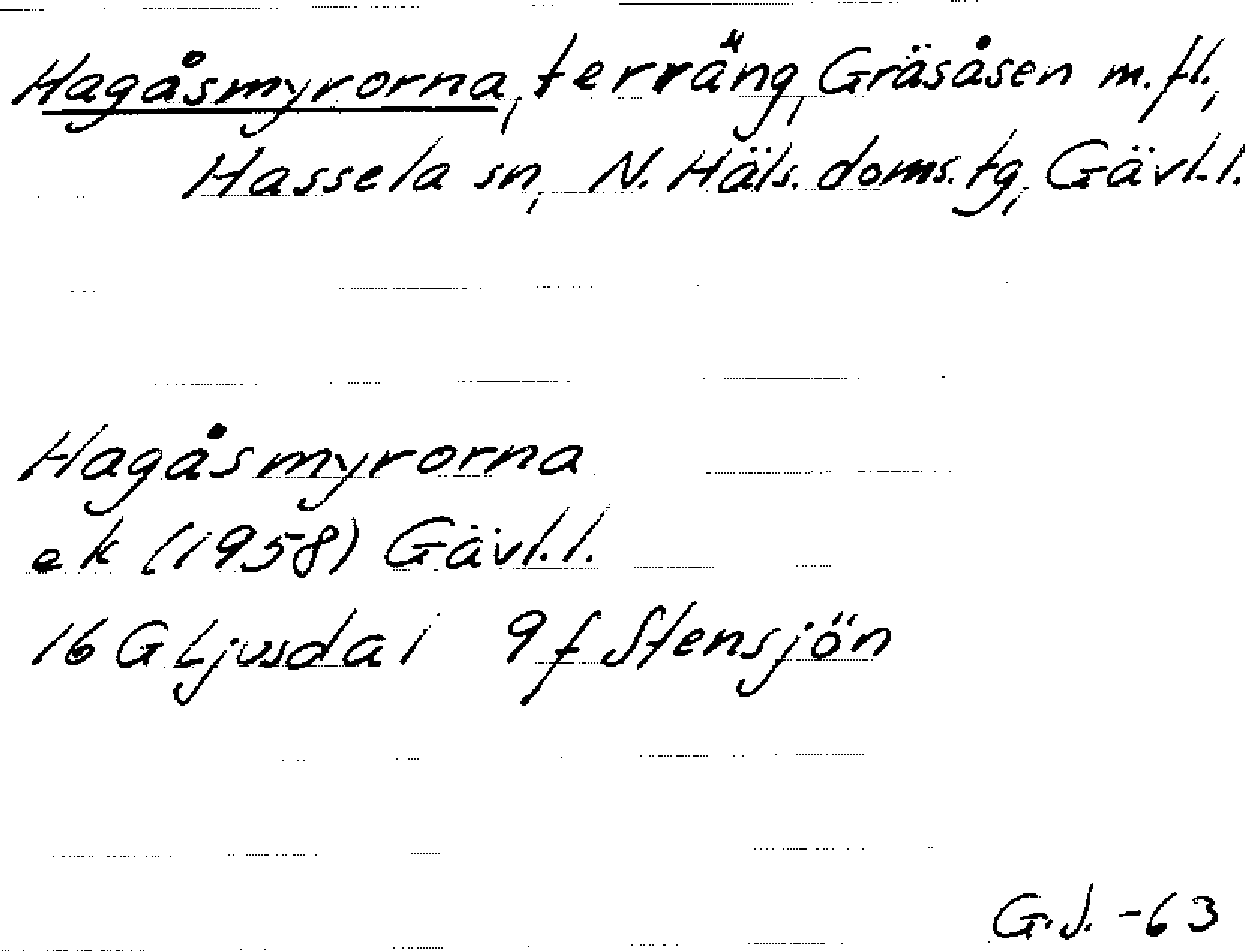 Hagåsmyrorna, terräng, Gräsåsen m.fl.,
Hassela sn, N. Häls. doms. tg, Gävl. l.
Hagåsmyrorna
ek (1958) Gävl. l.
16 G Ljusdal 9 f Stensjön
G.J. -63